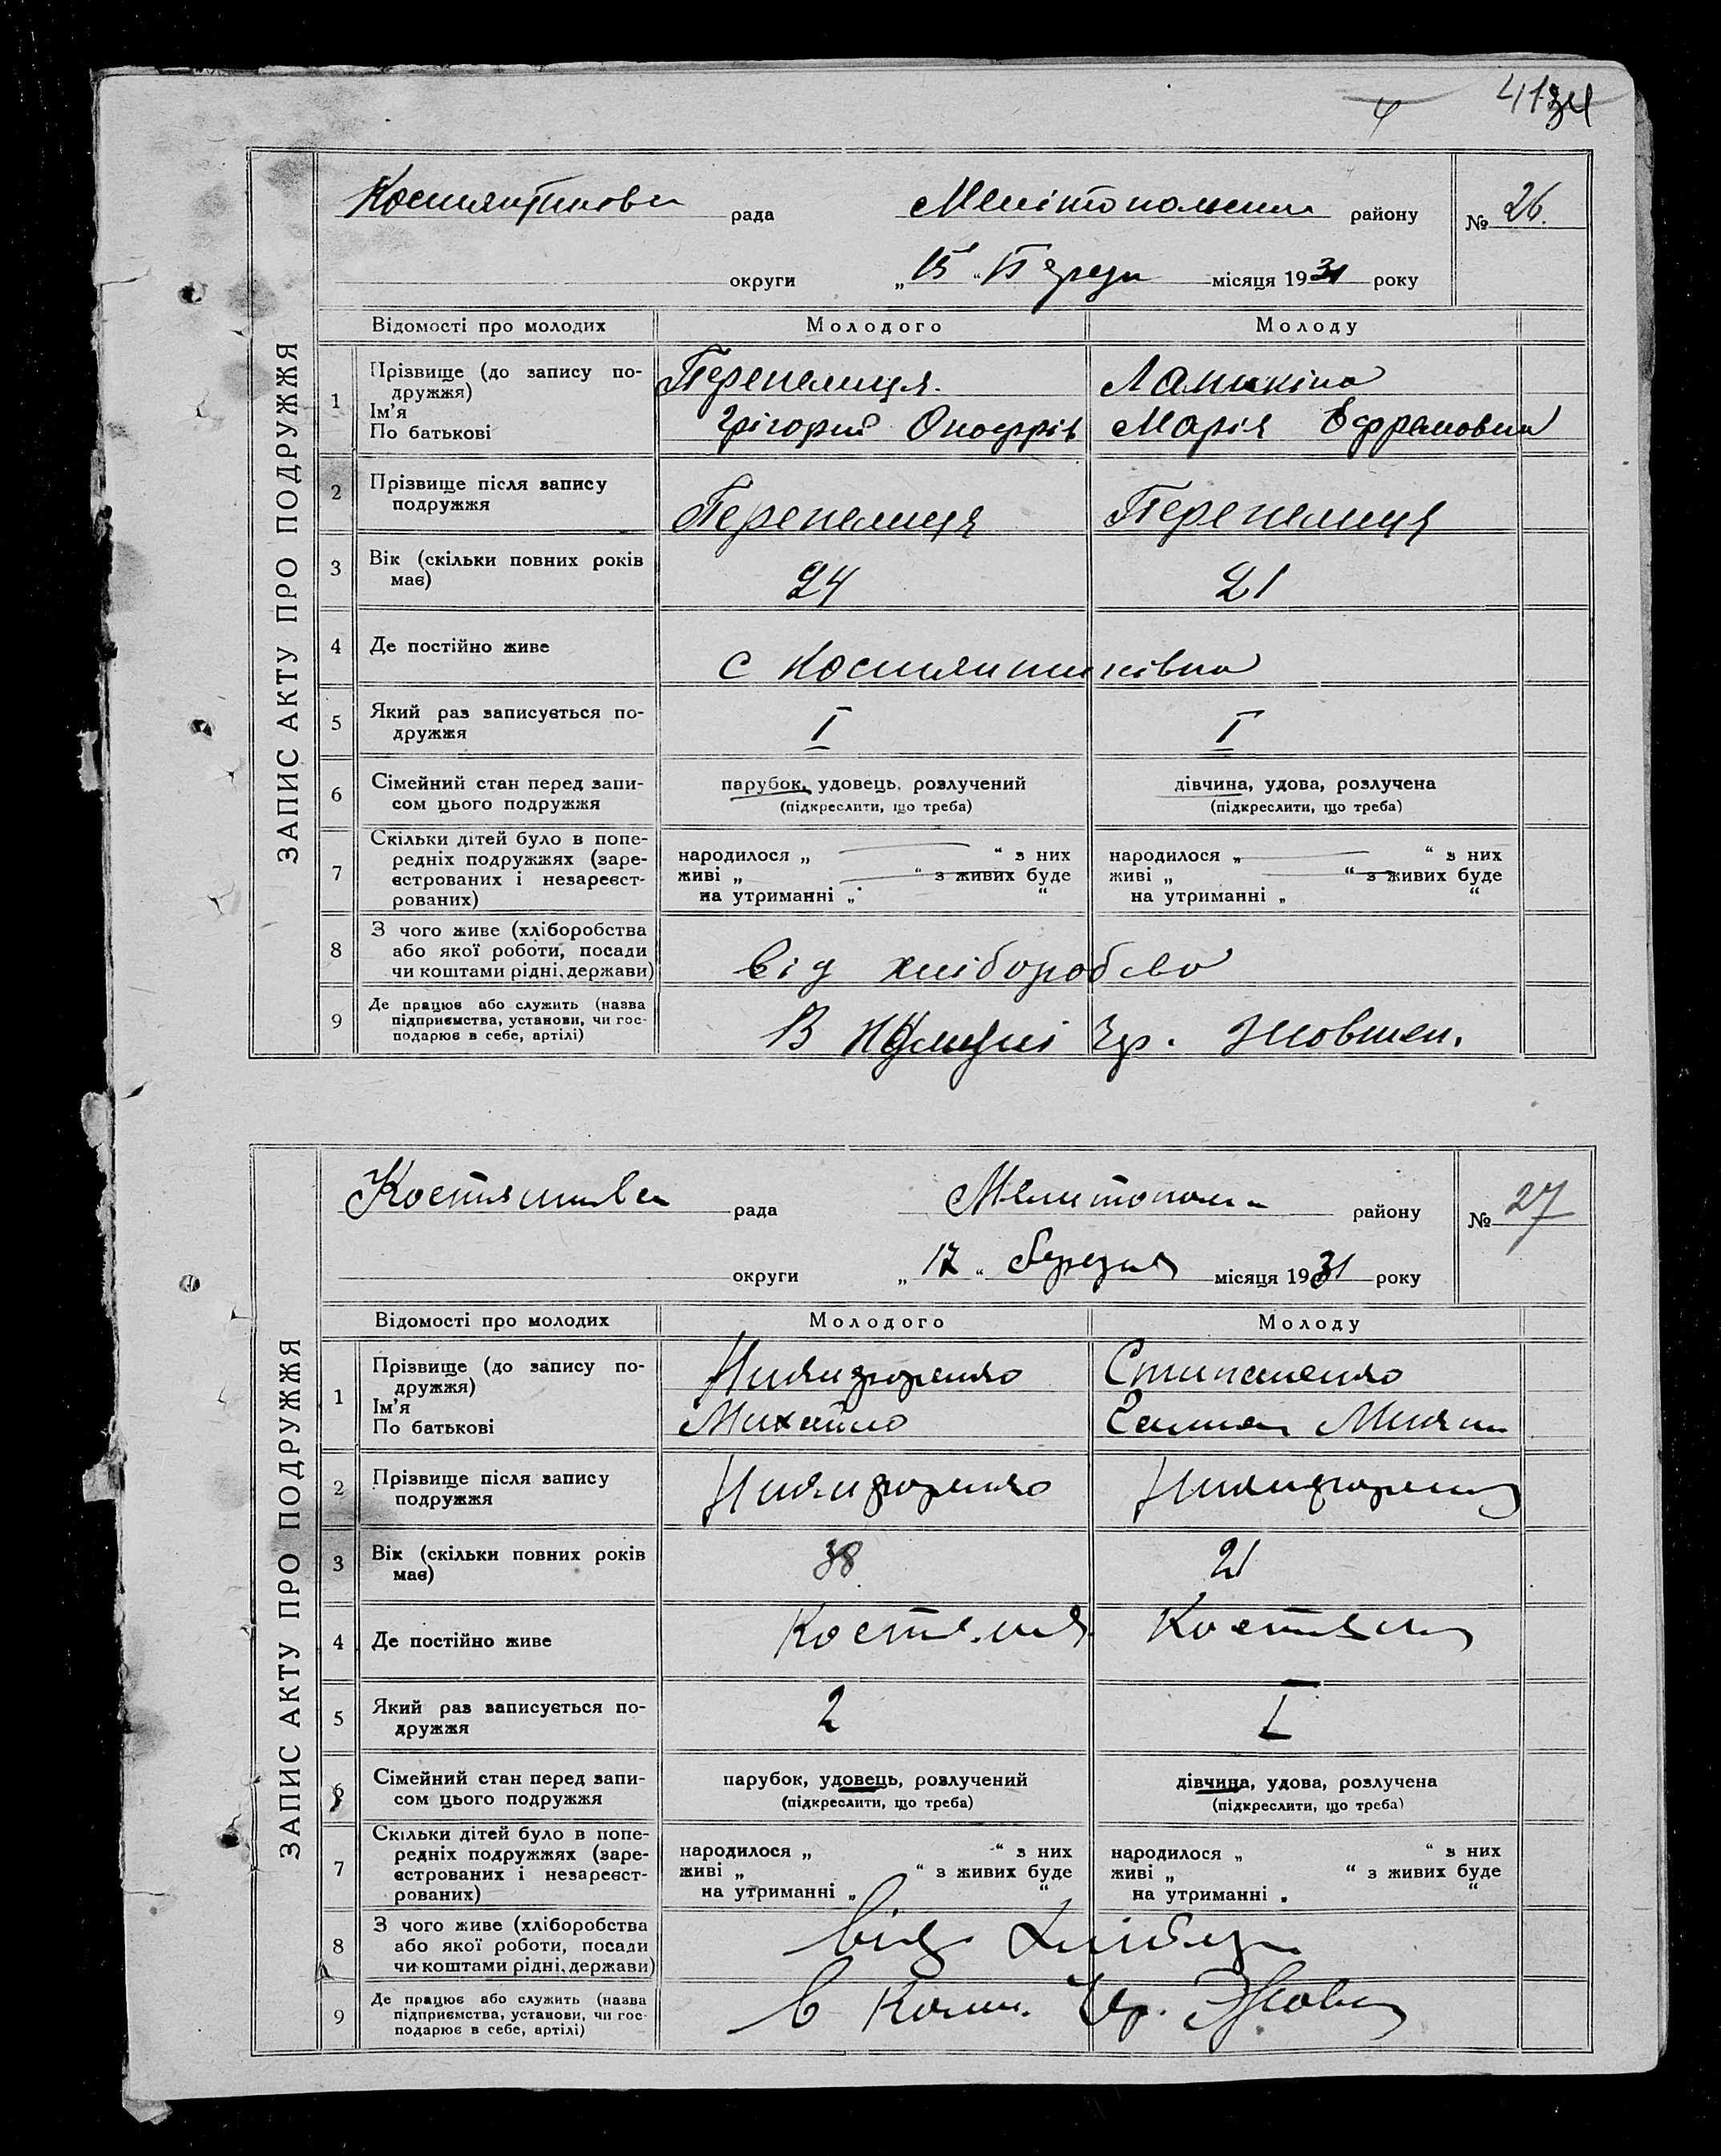 ЗАПИС АКТУ ПРО ПОДРУЖЖЯ
рада Мелітопольськ району № 26.
округи „15“ місяця 1931 року
Відомості про молодих Молодого Молоду
1 Прізвище (до запису по- Перепелиця.
дружжя)
Ім'я Грігорий Онофрів Марія Ефрамовна
По батькові
2 Прізвище після запису
подружжя Перепелиця Перепелиця
3 Вік (скільки повних років
має) 24 21
4 Де постійно живе с
5 Який раз записується по- I I
дружжя
6 Сімейний стан перед запи- парубок, удовець, розлучений дівчина, удова, розлучена
сом цього подружжя (підкреслити, що треба) (підкреслити, що треба)
7 Скільки дітей було в попе-
редніх подружжях (заре- народилося „ “ з них народилося „ “ з них
єстрованих і незареєст- живі „ “ з живих буде живі „ “ з живих буде
рованих) на утриманні „ “ на утриманні „ “
8 З чого живе (хліборобства
або якої роботи, посади від хліборобсво
чи коштами рідні, держави)
9 Де працює або служить (назва
підприємства, установи, чи гос- В Чр. Жовтен.
подарює в себе, артілі)
ЗАПИС АКТУ ПРО ПОДРУЖЖЯ
рада району № 27
округи „17“ березня місяця 1931 року
Відомості про молодих Молодого Молоду
1 Прізвище (до запису по- Никифоренко Степаненко
дружжя)
Ім'я Михайло
По батькові
2 Прізвище після запису Никифоренко Никифоренко
подружжя
3 Вік (скільки повних років 38 21
має)
4 Де постійно живе
5 Який раз записується по- 2 I
дружжя
6 Сімейний стан перед запи- парубок, удовець, розлучений дівчина, удова, розлучена
сом цього подружжя (підкреслити, що треба) (підкреслити, що треба)
7 Скільки дітей було в попе-
редніх подружжях (заре- народилося „ “ з них народилося „ “ з них
єстрованих і незареєст- живі „ “ з живих буде живі „ “ з живих буде
рованих) на утриманні „ “ на утриманні „ “
8 З чого живе (хліборобства від
або якої роботи, посади
чи коштами рідні, держави)
9 Де працює або служить (назва в Ком. Чер. Жовт
підприємства, установи, чи гос-
подарює в себе, артілі)